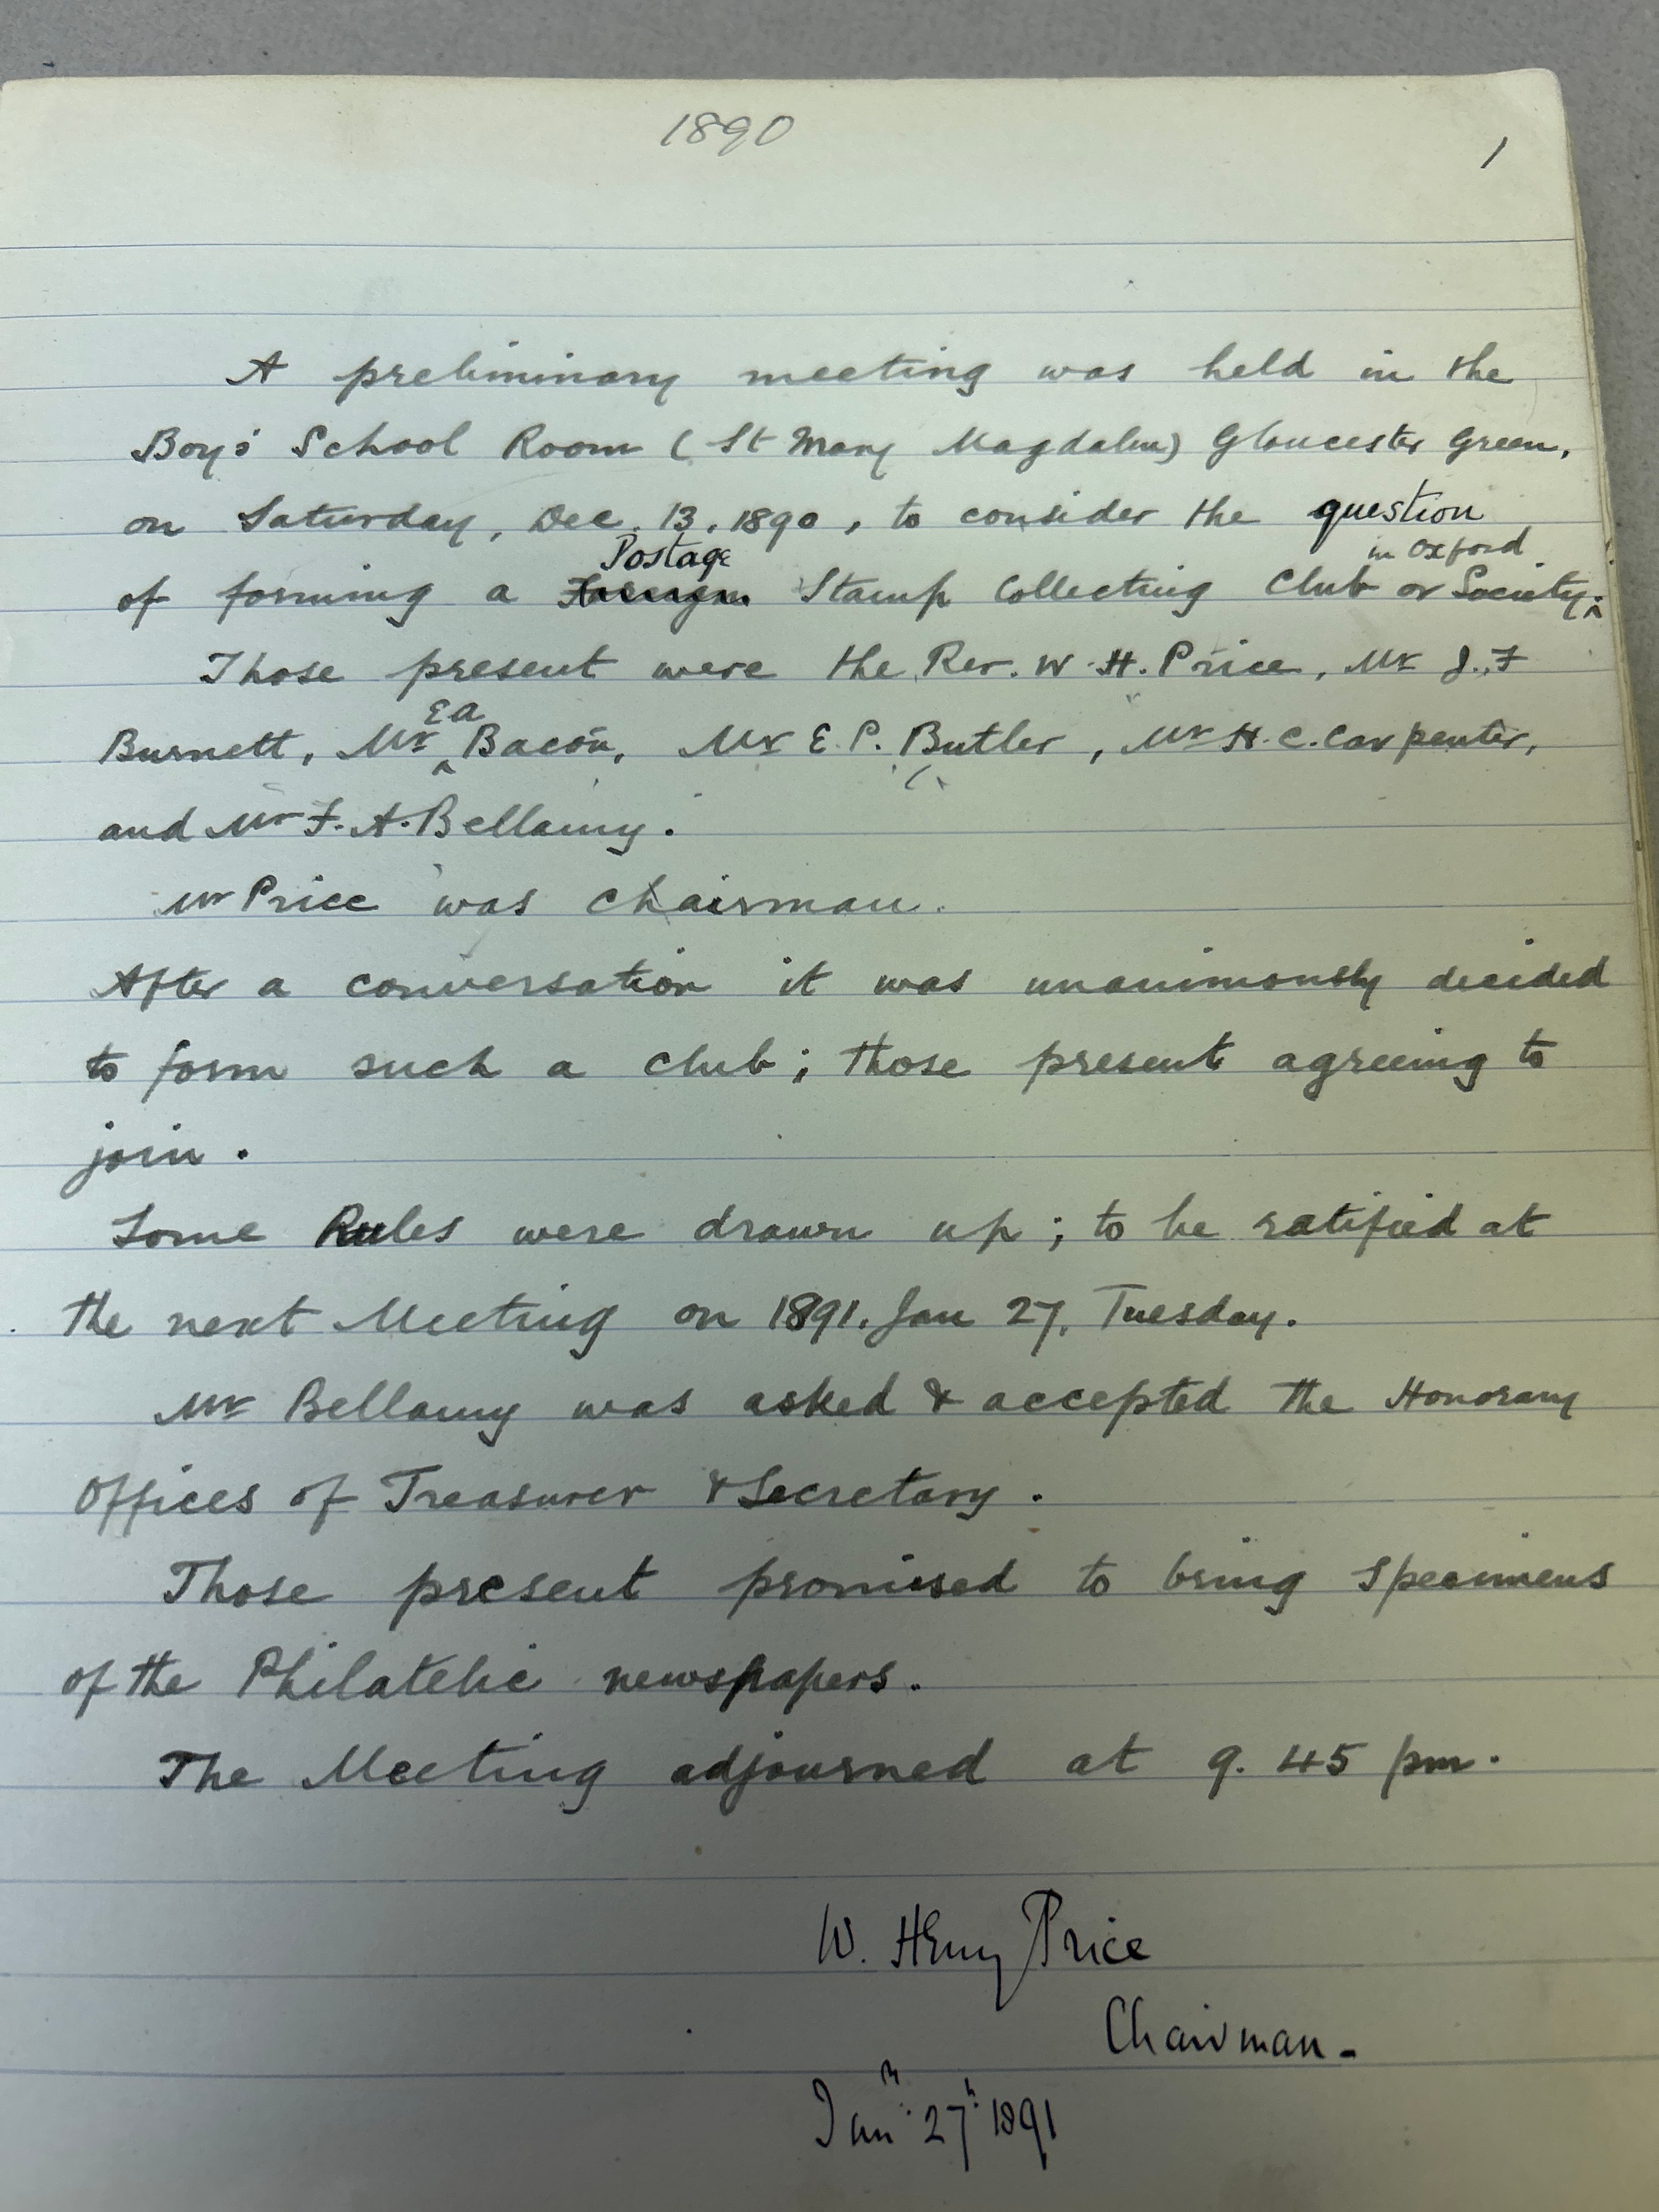 1890
1
A preliminary meeting was held in the
Boys' School Room (St Mary Magdalen) Gloucester Green,
on Saturday, Dec. 13. 1890, to consider the question
of forming a Foreign Postage Stamp Collecting Club or Society in Oxford.
Those present were the Rev. W. H. Price, Mr J. F
Burnett, Mr E A Bacon, Mr E. P. Butler, Mr H. C. Carpenter,
and Mr F. A. Bellamy.
Mr Price was Chairman.
After a conversation it was unanimously decided
to form such a club; those present agreeing to
join.
Some Rules were drawn up; to be ratified at
the next Meeting on 1891. Jan 27. Tuesday.
Mr Bellamy was asked & accepted the Honorary
Offices of Treasurer & Secretary.
Those present promised to bring specimens
of the Philatelic newspapers.
The Meeting adjourned at 9. 45 pm.
W. Henry Price
Chairman -
Jany 27th 1891